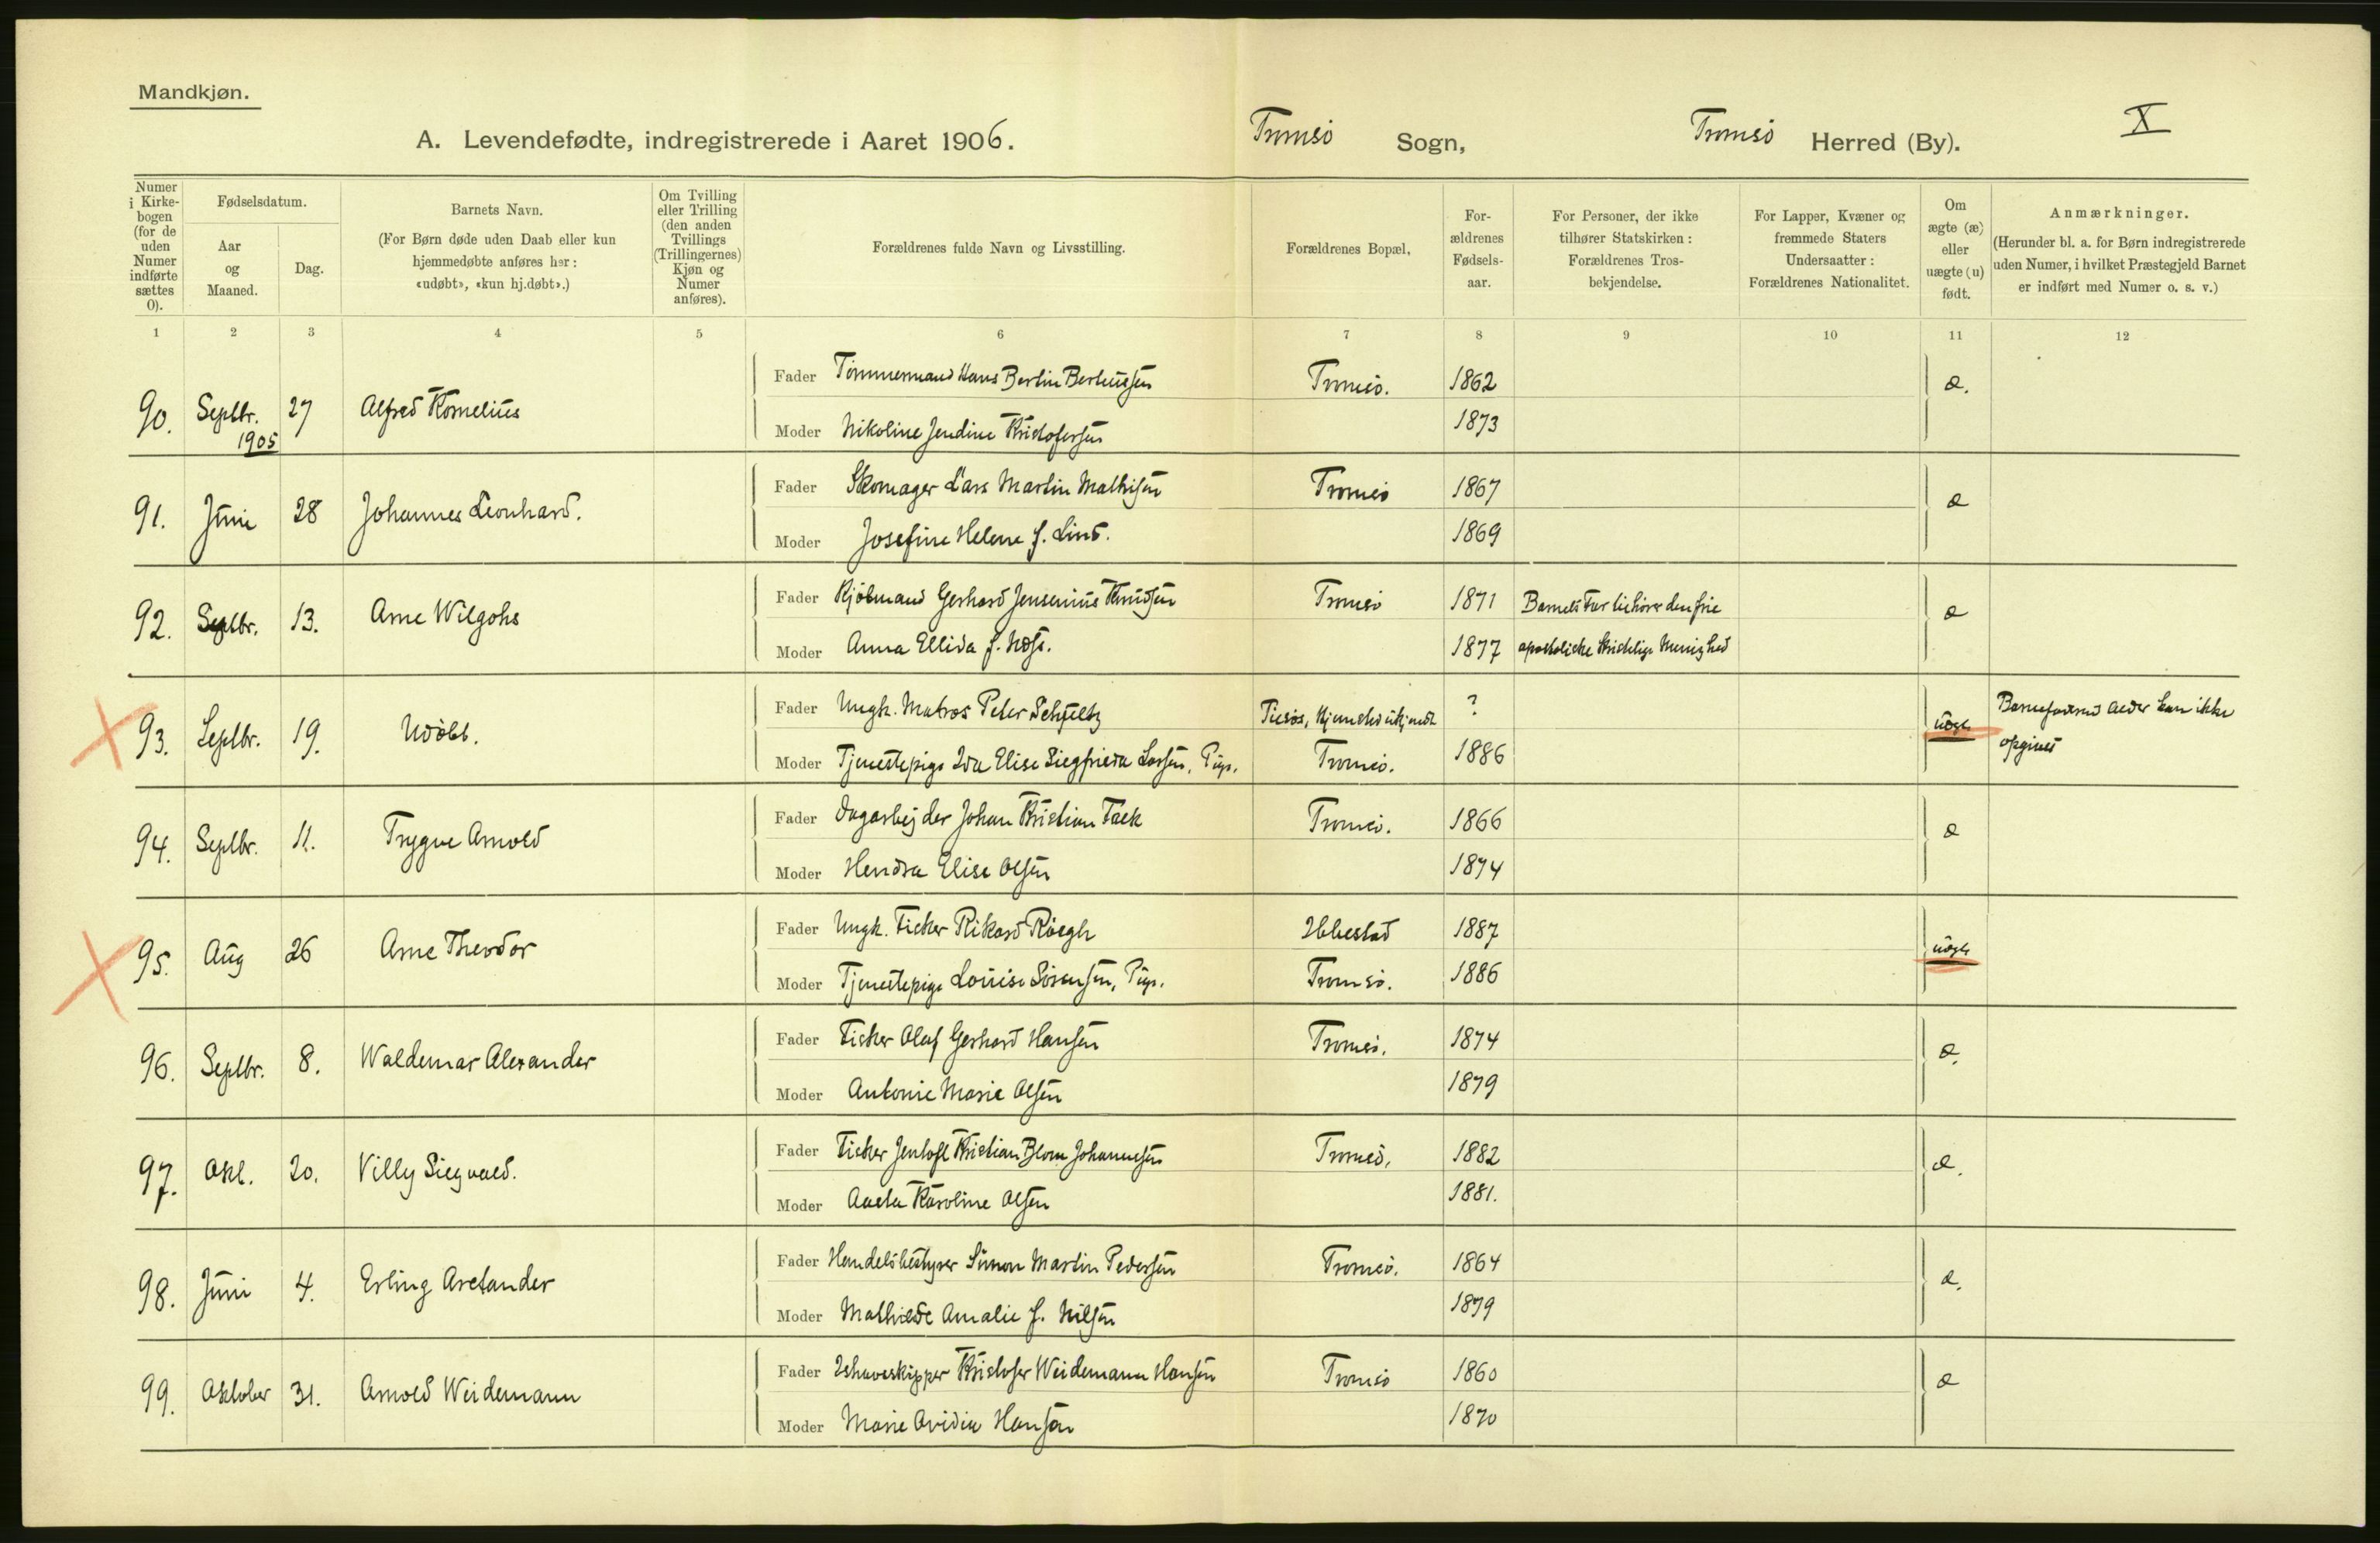 Mandkjøn.
A. Levendefødte, indregistrerede i Aaret 1906. Tromsø Sogn, Tromsø Herred (By). X
Numer i Kirkebogen (for de uden Numer indførte sættes 0).
Fødselsdatum.
Aar og Maaned.
Dag.
Barnets Navn.
(For Børn døde uden Daab eller kun
hjemmedøbte anføres her:
«udøbt», «kun hj.døbt».)
Om Tvilling
eller Trilling
(den anden
Tvillings
(Trillingernes)
Kjøn og
Numer
anføres).
Forældrenes fulde Navn og Livsstilling.
Forældrenes Bopæl.
For-
ældrenes
Fødsels-
aar.
For Personer, der ikke
tilhører Statskirken:
Forældrenes Tros-
bekjendelse.
For Lapper, Kvæner og
fremmede Staters
Undersaatter:
Forældrenes Nationalitet.
Om
ægte (æ)
eller
uægte (u)
født.
Anmærkninger.
(Herunder bl. a. for Børn indregistrerede
uden Numer, i hvilket Præstegjeld Barnet
er indført med Numer o. s. v.)
1 2 3 4 5 6 7 8 9 10 11 12
90. Septbr. 1905 27 Alfred Kornelius
Fader Tømmermand Hans Bertin Berteussen Tromsø. 1862 æ.
Moder Nikoline Jendine Kristofersen 1873
91. Juni 28 Johannes Leonhard.
Fader Skomager Lars Martin Mathisen Tromsø 1867 æ
Moder Josefine Helene f. Lind. 1869
92. Septbr. 13. Arne Wilgohs
Fader Kjøbmand Gerhard Jensenius Knudsen Tromsø 1871 Barnets Far tilhører den frie æ
Moder Anna Ellida f. 1877 apostoliske kristelige Menighed
93. Septbr. 19. Udøbt.
Fader Ungk. Matros Peter Schjeltz Hjemsted ukjendt ? uægte Barnefaderens Alder kan ikke
opgives
Moder Tjenestepige Ida Elise Siegfrieda Larsen, Pige. Tromsø. 1886
94. Septbr. 11. Trygve Arnold
Fader Dagarbejder Johan Kristian Falk Tromsø. 1866 æ
Moder Hendra Elise Olsen 1874
95. Aug 26 Arne Theodor
Fader Ungk. Fisker Rikard Røegh Ibbestad 1887 uægte
Moder Tjenestepige Louise Sørensen, Pige. Tromsø. 1886
96. Septbr. 8. Waldemar Alexander
Fader Fisker Olaf Gerhard Hansen Tromsø. 1874 æ.
Moder Antonie Marie Olsen 1879
97. Okt. 20. Villy Siegvald.
Fader Fisker Jentoft Kristian Blom Johannesen Tromsø. 1882 æ.
Moder Aasta Karoline Olsen 1881.
98. Juni 4. Erling Aretander
Fader Handelsbestyrer Simon Martin Pedersen Tromsø. 1864 æ.
Moder Mathilde Amalie f. Nilsen 1879
99. Oktober 31. Arnold Weidemann
Fader Ishavsskipper Kristofer Weidemann Hansen Tromsø 1860 æ
Moder Marie Ovidia Hansen 1870